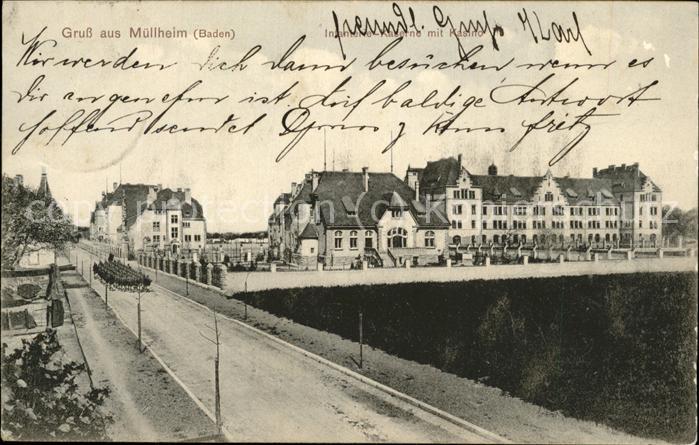 Gruß aus Müllheim (Baden)
Infanterie-Kaserne mit Kasino
freundl. Gruß Karl
Wir werden Dich dann besuchen wenn es
Dir angenehm ist. Auf baldige Antwort
hoffend sendet Gruss
Fritz